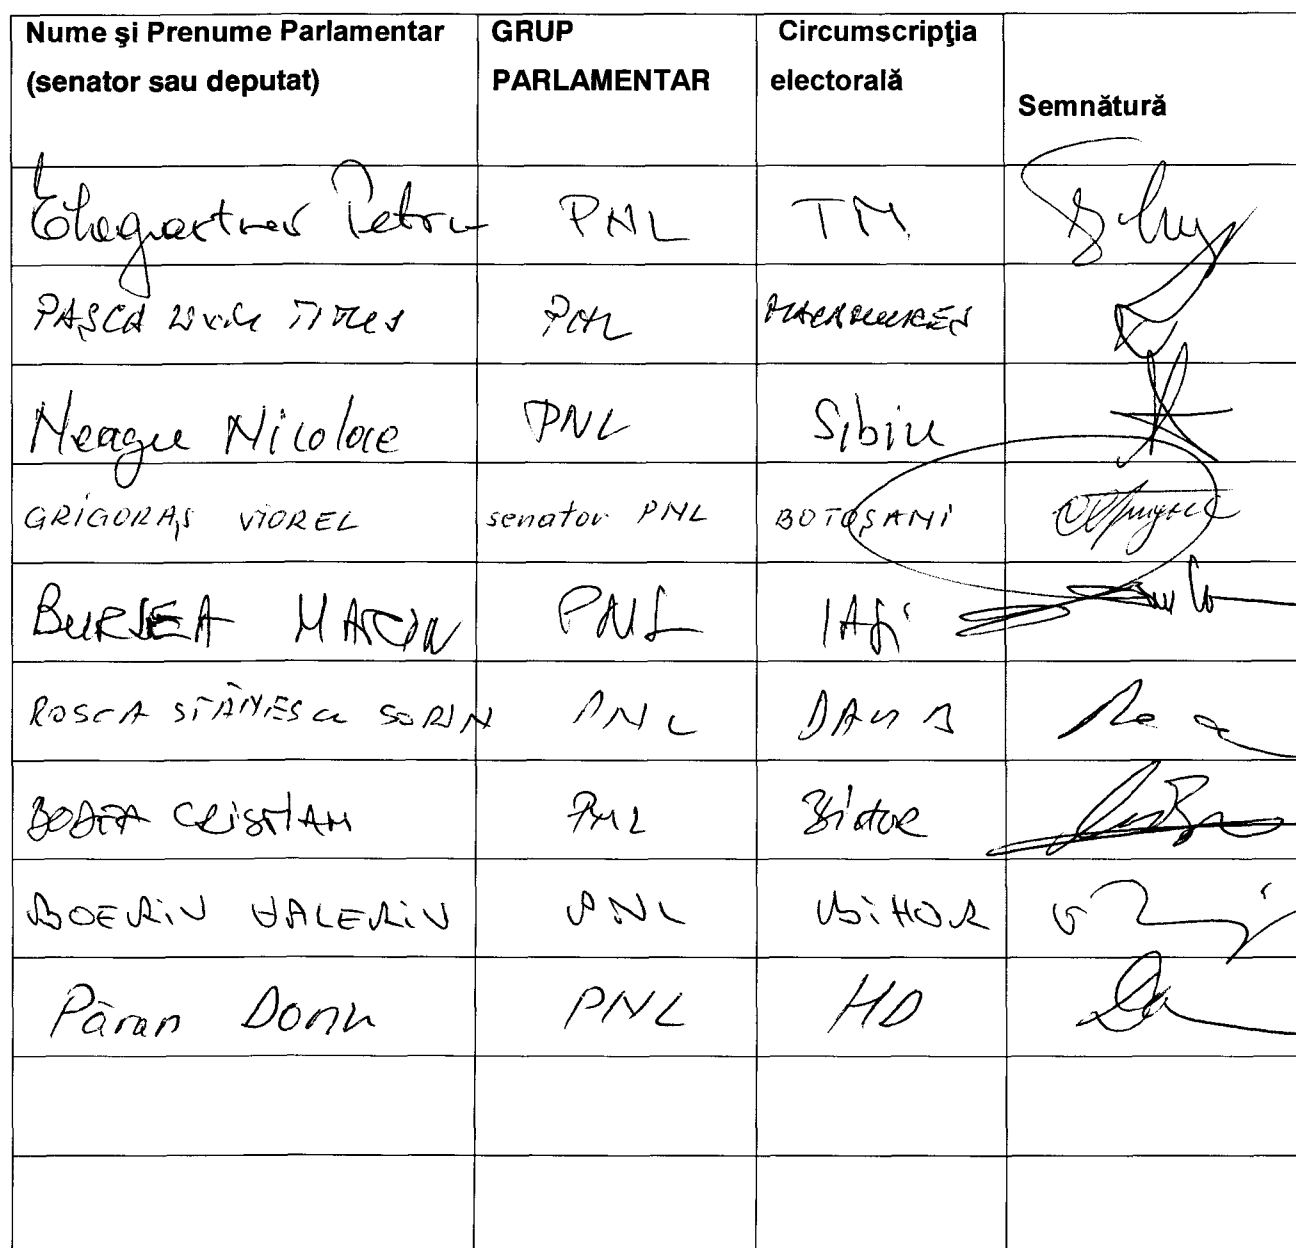 Nume şi Prenume Parlamentar (senator sau deputat) GRUP PARLAMENTAR Circumscripţia electorală Semnătură
Ehegartner Petru PNL TM
PAŞCA TITUS PNL MARAMUREŞ
Neagu Nicolae PNL Sibiu
GRIGORAŞ VIOREL senator PNL BOTOŞANI
BURSEA MARIN PNL IAŞI
ROSCA STĂNESCU SORIN PNL
BODEA CRISTIAN PNL BIHOR
BOERIU VALERIU PNL BIHOR
Păran Dorin PNL HD